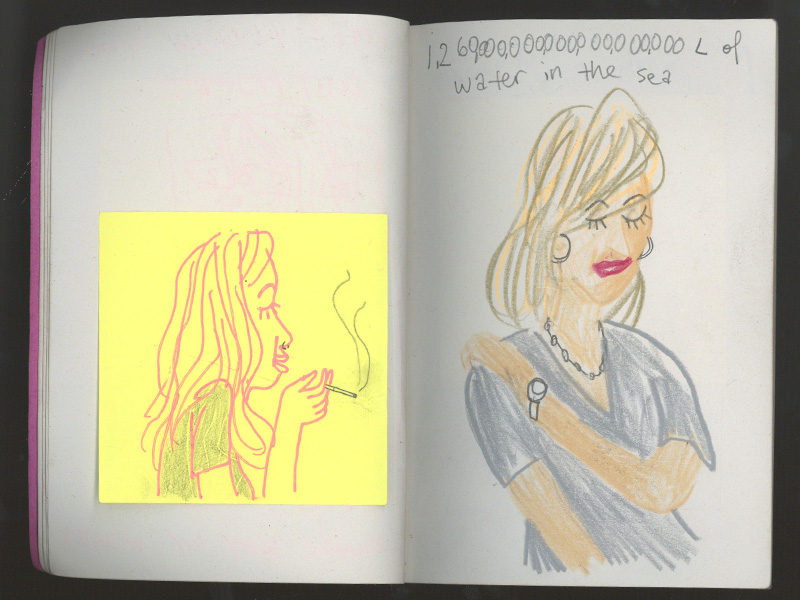 1,260,000,000,000,000,000,000 L of
water in the sea